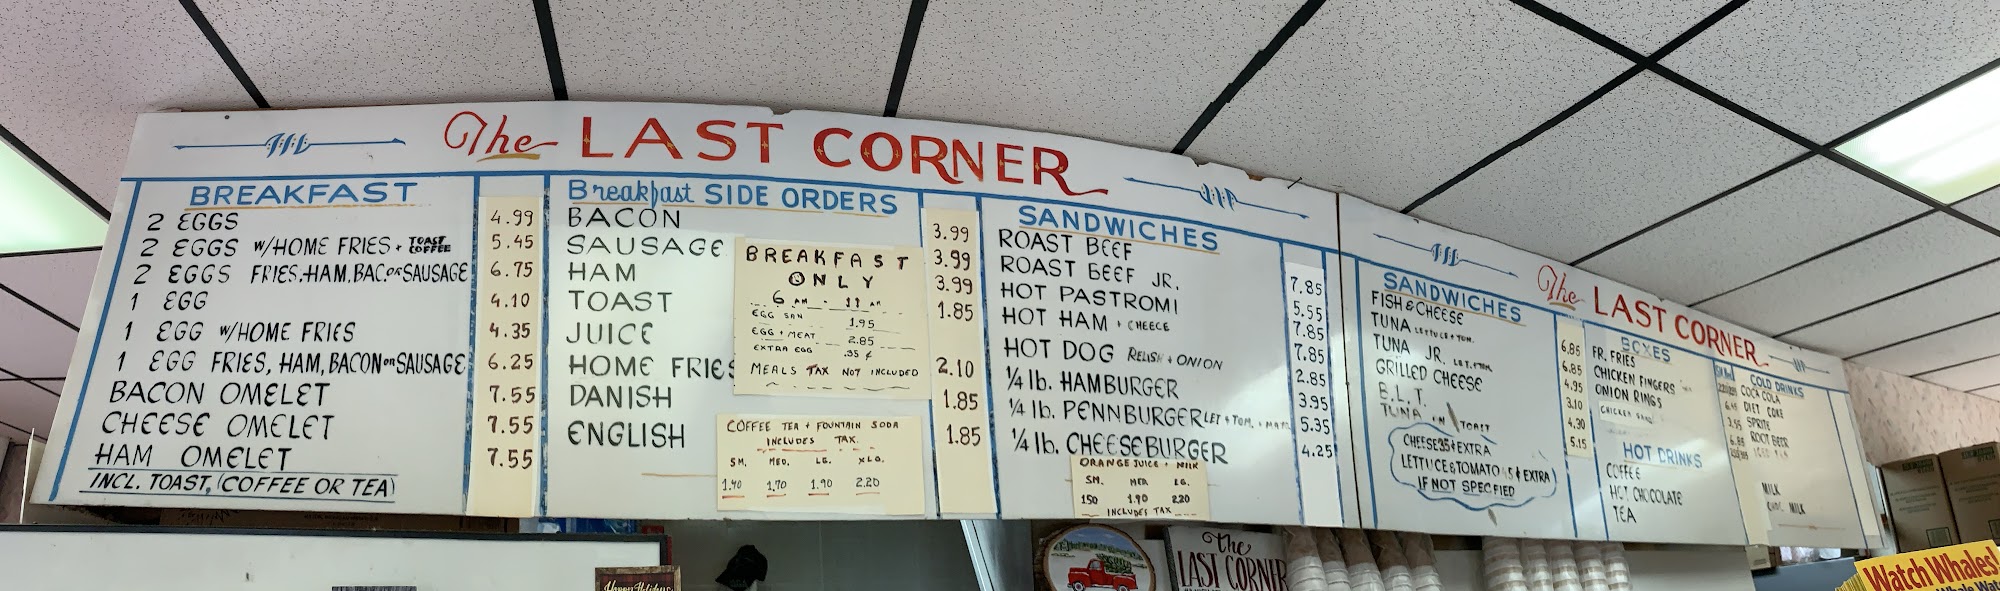 The LAST CORNER
BREAKFAST
2 EGGS 4.99
2 EGGS W/HOME FRIES + TOAST COFFEE 5.45
2 EGGS FRIES, HAM, BAC. OR SAUSAGE 6.75
1 EGG 4.10
1 EGG W/HOME FRIES 4.35
1 EGG FRIES, HAM, BACON OR SAUSAGE 6.25
BACON OMELET 7.55
CHEESE OMELET 7.55
HAM OMELET 7.55
INCL. TOAST, (COFFEE OR TEA)
Breakfast SIDE ORDERS
BACON 3.99
SAUSAGE 3.99
HAM 3.99
TOAST 1.85
JUICE
HOME FRIES 2.10
DANISH 1.85
ENGLISH 1.85
BREAKFAST
ONLY
6 AM - 11 AM
EGG SAN 1.95
EGG + MEAT 2.85
EXTRA EGG .35 ¢
MEALS TAX NOT INCLUDED
COFFEE TEA + FOUNTAIN SODA
INCLUDES TAX.
SM. MED. LG. XLG.
1.40 1.70 1.90 2.20
SANDWICHES
ROAST BEEF 7.85
ROAST BEEF JR. 5.55
HOT PASTROMI 7.85
HOT HAM + CHEECE 7.85
HOT DOG RELISH + ONION 2.85
1/4 lb. HAMBURGER 3.95
1/4 lb. PENNBURGER LET + TOM. + MAYO 5.35
1/4 lb. CHEESEBURGER 4.25
ORANGE JUICE + MILK
SM. MED. LG.
150 1.90 2.20
INCLUDES TAX
The LAST CORNER
SANDWICHES
FISH & CHEESE 6.85
TUNA LETTUCE + TOM. 6.85
TUNA JR. LET. + TOM. 4.95
GRILLED CHEESE 3.10
B.L.T. 4.30
TUNA TOAST 5.15
CHEESE 35¢ EXTRA
LETTUCE & TOMATO 5¢ EXTRA
IF NOT SPECFIED
BOXES
FR. FRIES
CHICKEN FINGERS
ONION RINGS
CHICKEN
HOT DRINKS
COFFEE
HOT CHOCOLATE
TEA
COLD DRINKS
COCA COLA
DIET COKE
SPRITE
ROOT BEER
MILK
CHOC. MILK
the
LAST CORNER
Happy Holidays
Watch Whales!